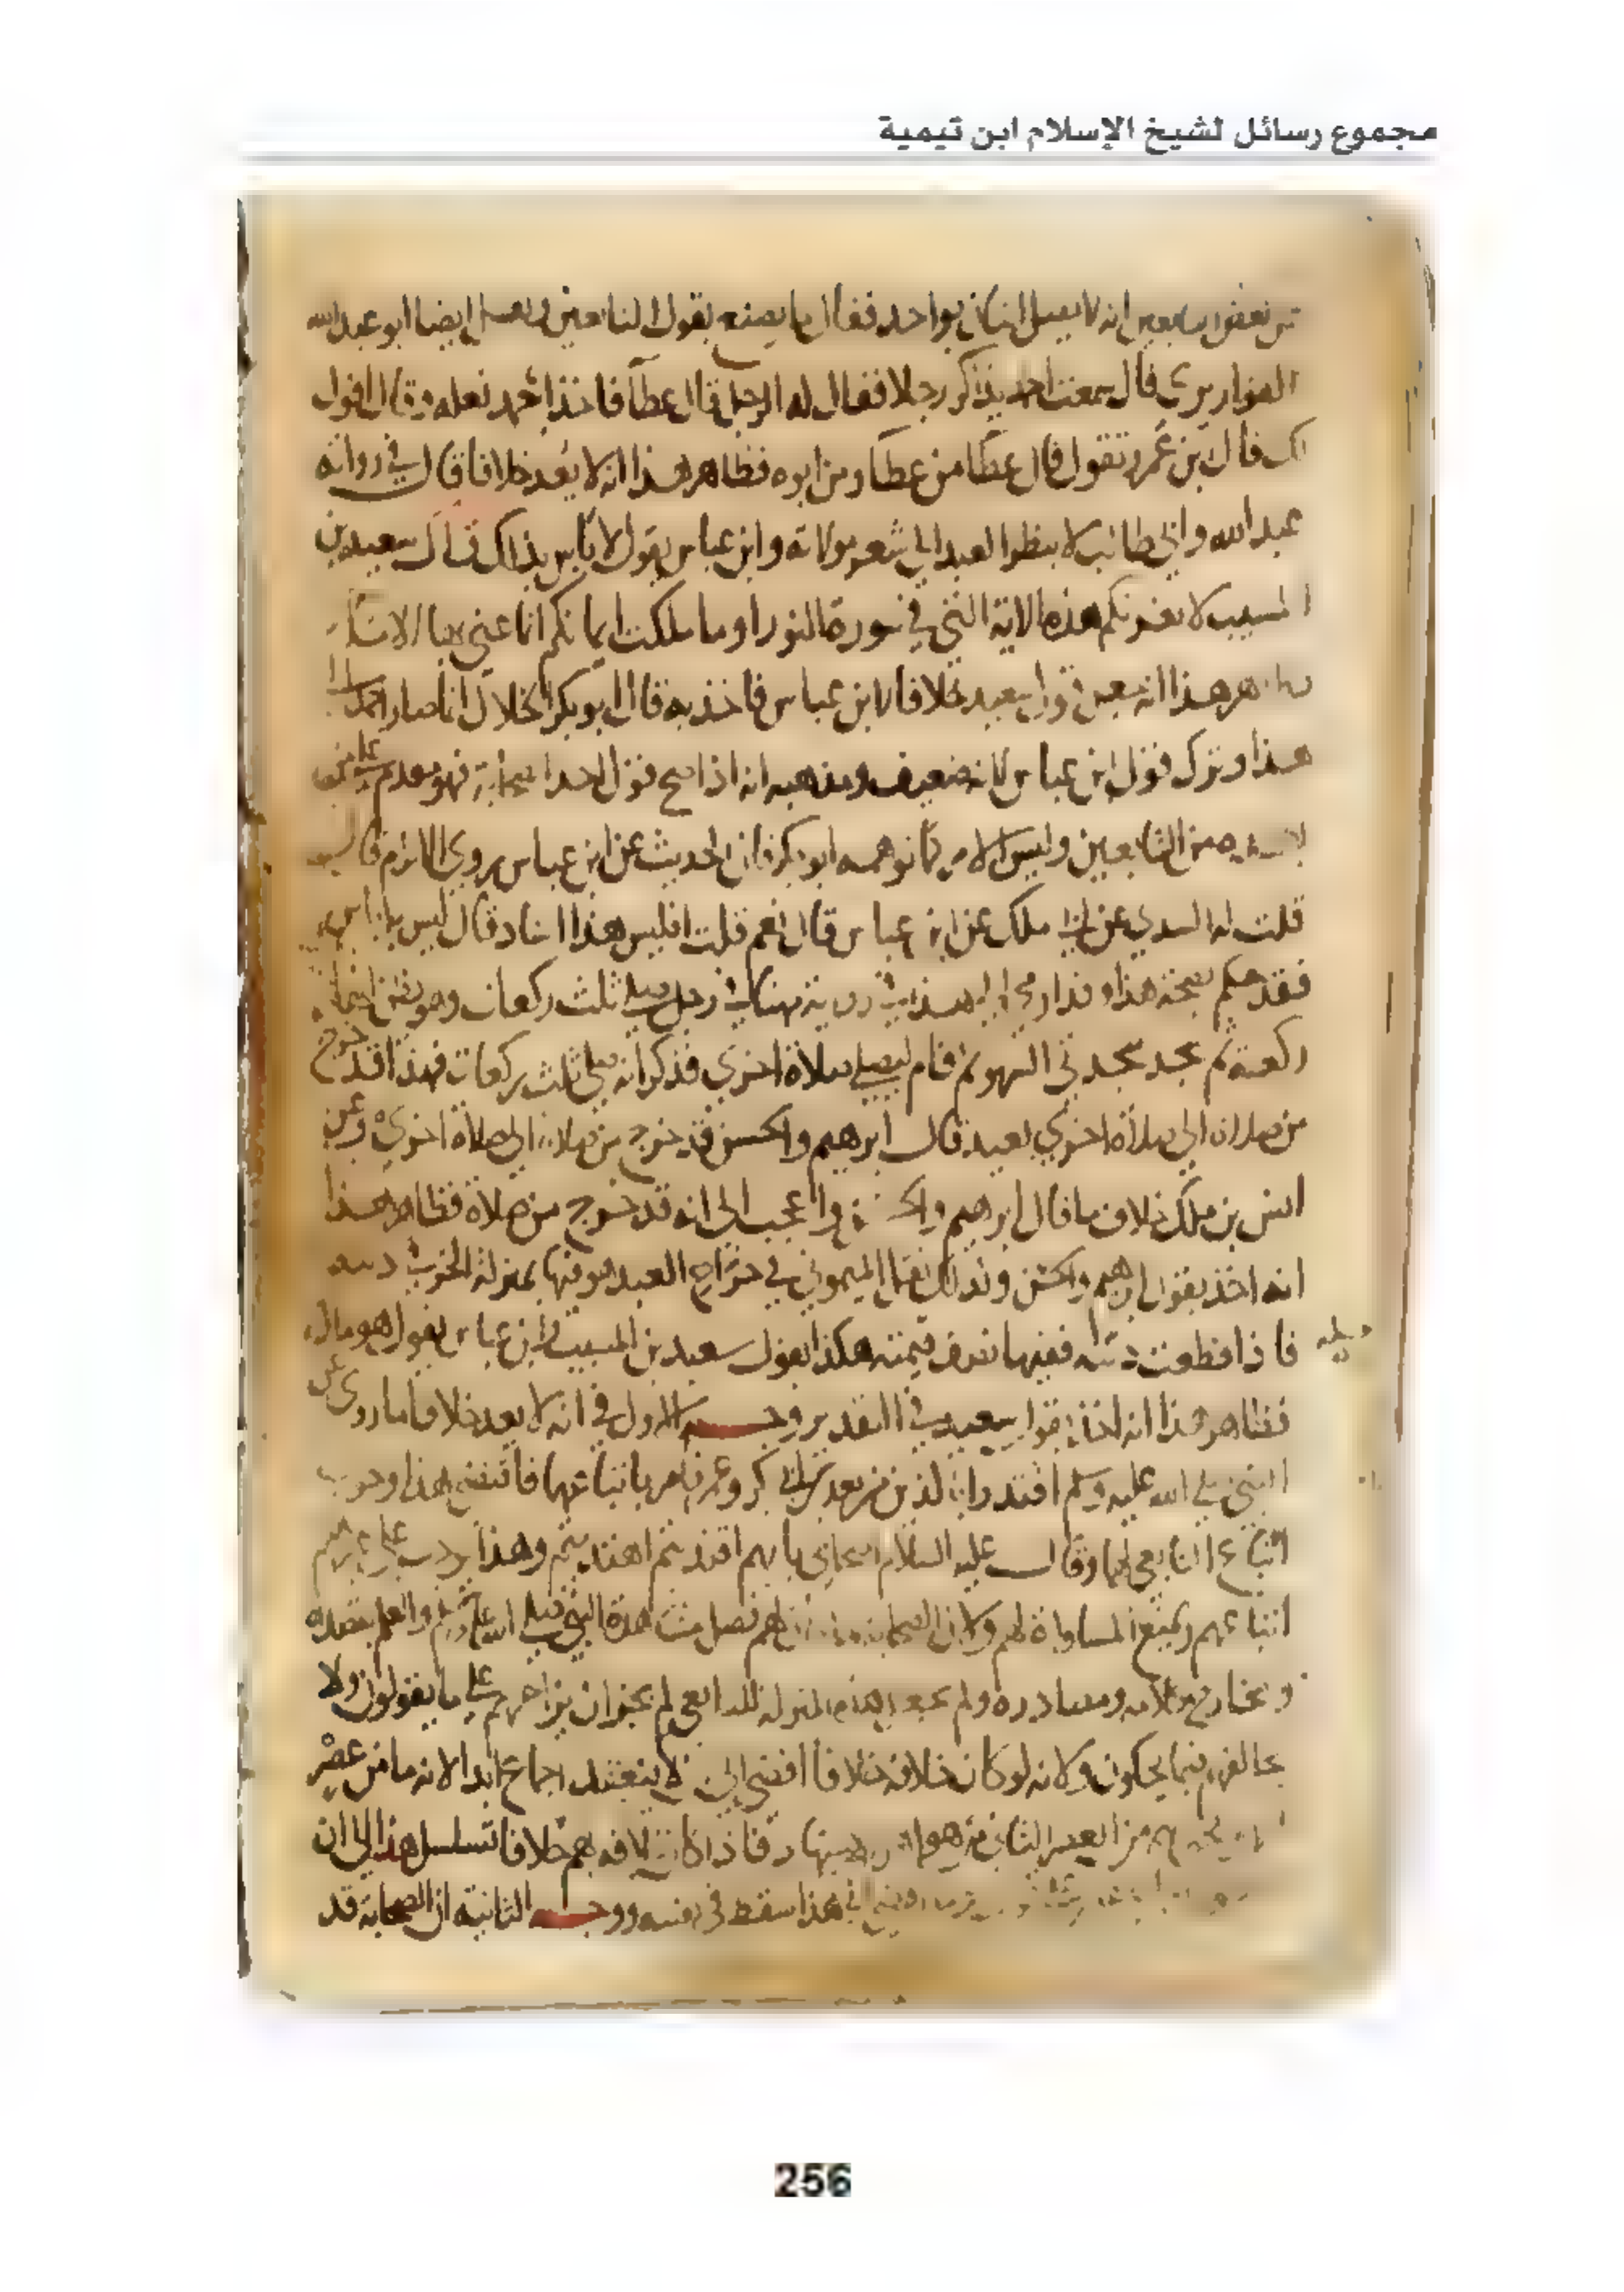 مجموع رسائل لشيخ الإسلام ابن تيمية
انه لا يقتل اثنان بواحد فقال ما يصنع بقول التابعين ونقل ايضا ابو عبد الله
القواريري قال سمعت احمد يذاكر رجلا فقال له الرجل قال عطآ فاخذ احمد نعله وقال اقول
لك قال ابن عمر وتقول قال عطا من عطا ومن ابوه فظاهر هذا انه لا يعد خلافا قال في رواية
عبد الله وابي طالب لا ينظر العبد الى شعر مولاته وابن عباس يقول لا باس بذلك قال سعيد بن
المسيب لا تغرنكم هذه الاية التي في سورة النور او ما ملكت ايمانكم انما عنى بها الاما
ظاهر هذا انه جعل قول سعيد خلافا لابن عباس فاخذ به قال ابو بكر الخلال انما صار احمد الى
هذا وترك قول ابن عباس لانه ضعيف ومذهبه انه اذا صح قول احد الصحابة فهو مقدم على من
من التابعين وليس الامر كما توهمه ابو بكر فان الحديث عن ابن عباس يروي الاثرم قال
قلت له السدي عن ابي ملك عن ابن عباس قال نعم قلت افليس هذا اسناد قال ليس به باس
فقد حكم بصحة هذا وقد اومى الى هذا في رواية مهنا في رجل صلى ثلث ركعات وهو يظن انها
ركعة ثم سجد سجدتي السهو ثم قام ليصلي صلاة اخرى فذكر انه صلى ثلث ركعات فهذا قد خرج
من صلاته الى صلاة اخرى يعيد قال ابرهيم والحسن قد خرج من صلاته الى صلاة اخرى وعن
انس بن ملك خلاف ما قال ابرهيم والحسن واعجب الي انه قد خرج من صلاة فظاهر هذا
انه اخذ بقول ابرهيم والحسن وكذلك نقل الميموني في جراح العبد هو فيها بمنزلة الحر في ديته
فاذا قطعت ديته ففيها نصف قيمته هكذا يقول سعيد بن المسيب وابن عباس يقول هو مال
فظاهر هذا انه اخذ بقول سعيد في التقدير وجه الاول في انه لا يعد خلافا ما روى عن
النبي صلى الله عليه وسلم اقتدوا بالذين من بعدي ابي بكر وعمر فامر باتباعهما فاقتضى هذا وجوب
اتباع التابعي لهما وقال عليه السلام اصحابي بايهم اقتديتم اهتديتم وهذا يوجب على غيرهم
اتباعهم ويمنع المساواة لهم ولان الصحابة لهم فضل مشاهدة النبي صلى الله عليه وسلم والعلم بقصده
ومخارج كلامه ومصادره ولم يحصل هذه المنزلة للتابعي لم يجز ان يزاحمهم على ما يقولون ولا
يخالفهم فيما يحكون ولانه لو كان خلافه خلافا افضى الى ان لا ينعقد اجماع ابدا لانه ما من عصر
من العصر الثاني من هو اهل الاجتهاد فاذا كان خلافهم خلافا تسلسل هذا الى ان
هذا سقط في نفسه ووجه الثانية ان الصحابة قد
256